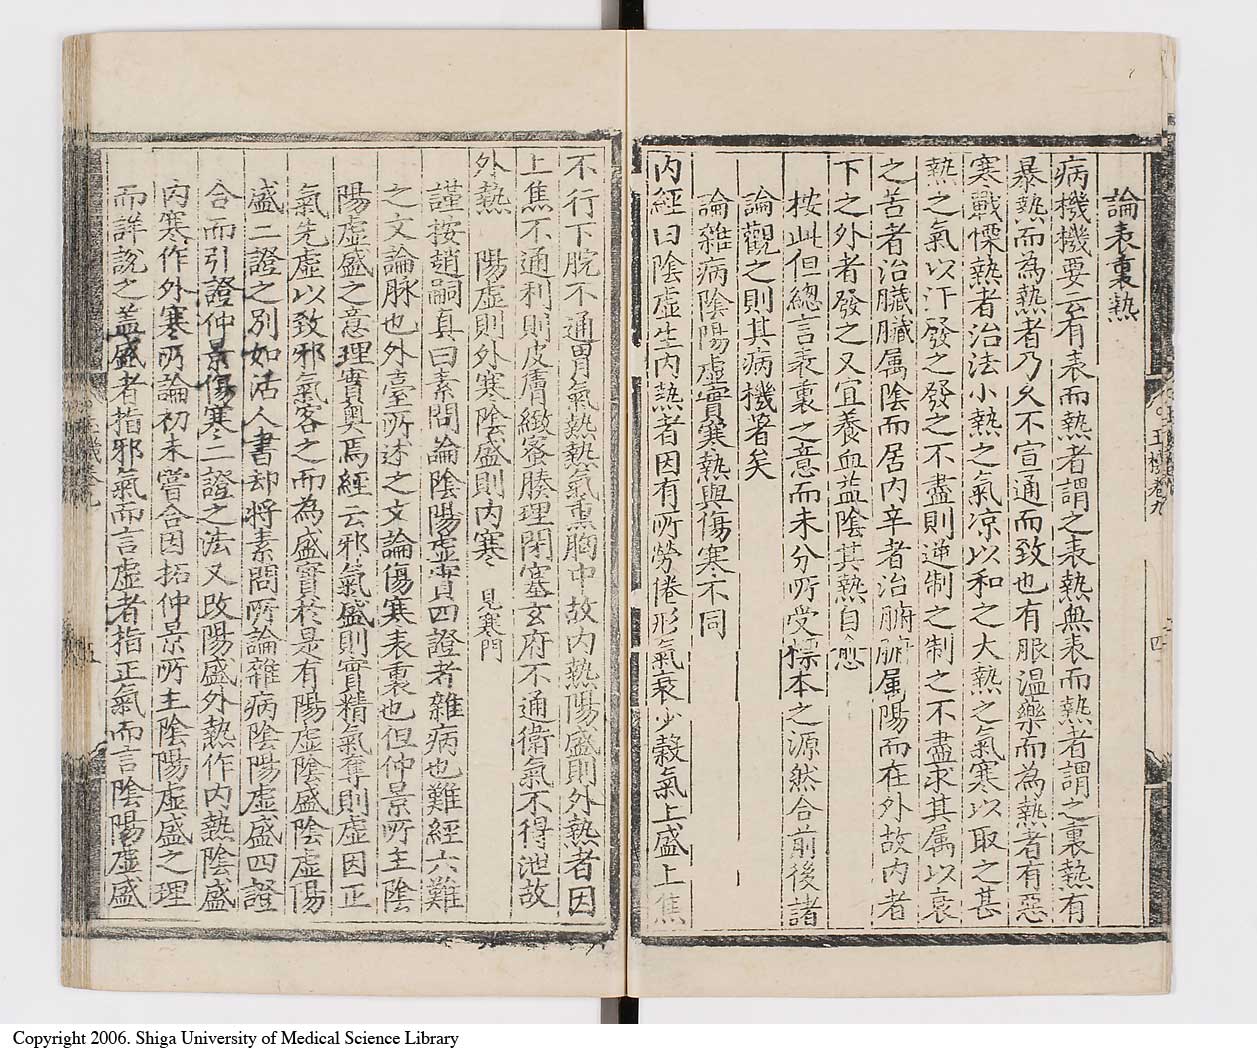 論表裏熱
病機機要云有表而熱者謂之表熱無表而熱者謂之裏熱有
暴熱而為熱者乃久不宣通而致也有服温藥而為熱者有惡
寒戰慄熱者治法小熱之氣凉以和之大熱之氣寒以取之甚
熱之氣以汗發之發之不盡則逆制之制之不盡求其属以衰
之苦者治臓臓属陰而居内辛者治腑腑属陽而在外故内者
下之外者發之又宜養血益陰其熱自愈
桉此但總言表裏之意而未分所受標本之源然合前後諸
論觀之則其病機著矣
論雜病陰陽虚實寒熱與傷寒不同
内經曰陰虚生内熱者因有所勞倦形氣衰少榖氣上盛上焦
不行下脘不通胃氣熱熱氣熏胸中故内熱陽盛則外熱者因
上焦不通利則皮膚緻宻腠理閉塞玄府不通衛氣不得泄故
外熱 陽虚則外寒陰盛則内寒 見寒門
謹按趙嗣真曰素問論陰陽虚實四證者雜病也難經六難
之文論脉也外臺所述之文論傷寒表裏也但仲景所主陰
陽虚盛之意理實奥焉經云邪氣盛則實精氣奪則虚因正
氣先虚以致邪氣客之而為盛實於是有陽虚陰盛陰虚陽
盛二證之別如活人書却將素問所論雜病陰陽虚盛四證
合而引證仲景傷寒二證之法又改陽盛外熱作内熱陰盛
内寒作外寒所論初未嘗合因拓仲景所主陰陽虚盛之理
而詳說之盖盛者指邪氣而言虚者指正氣而言陰陽虚盛
Copyright 2006. Shiga University of Medical Science Library